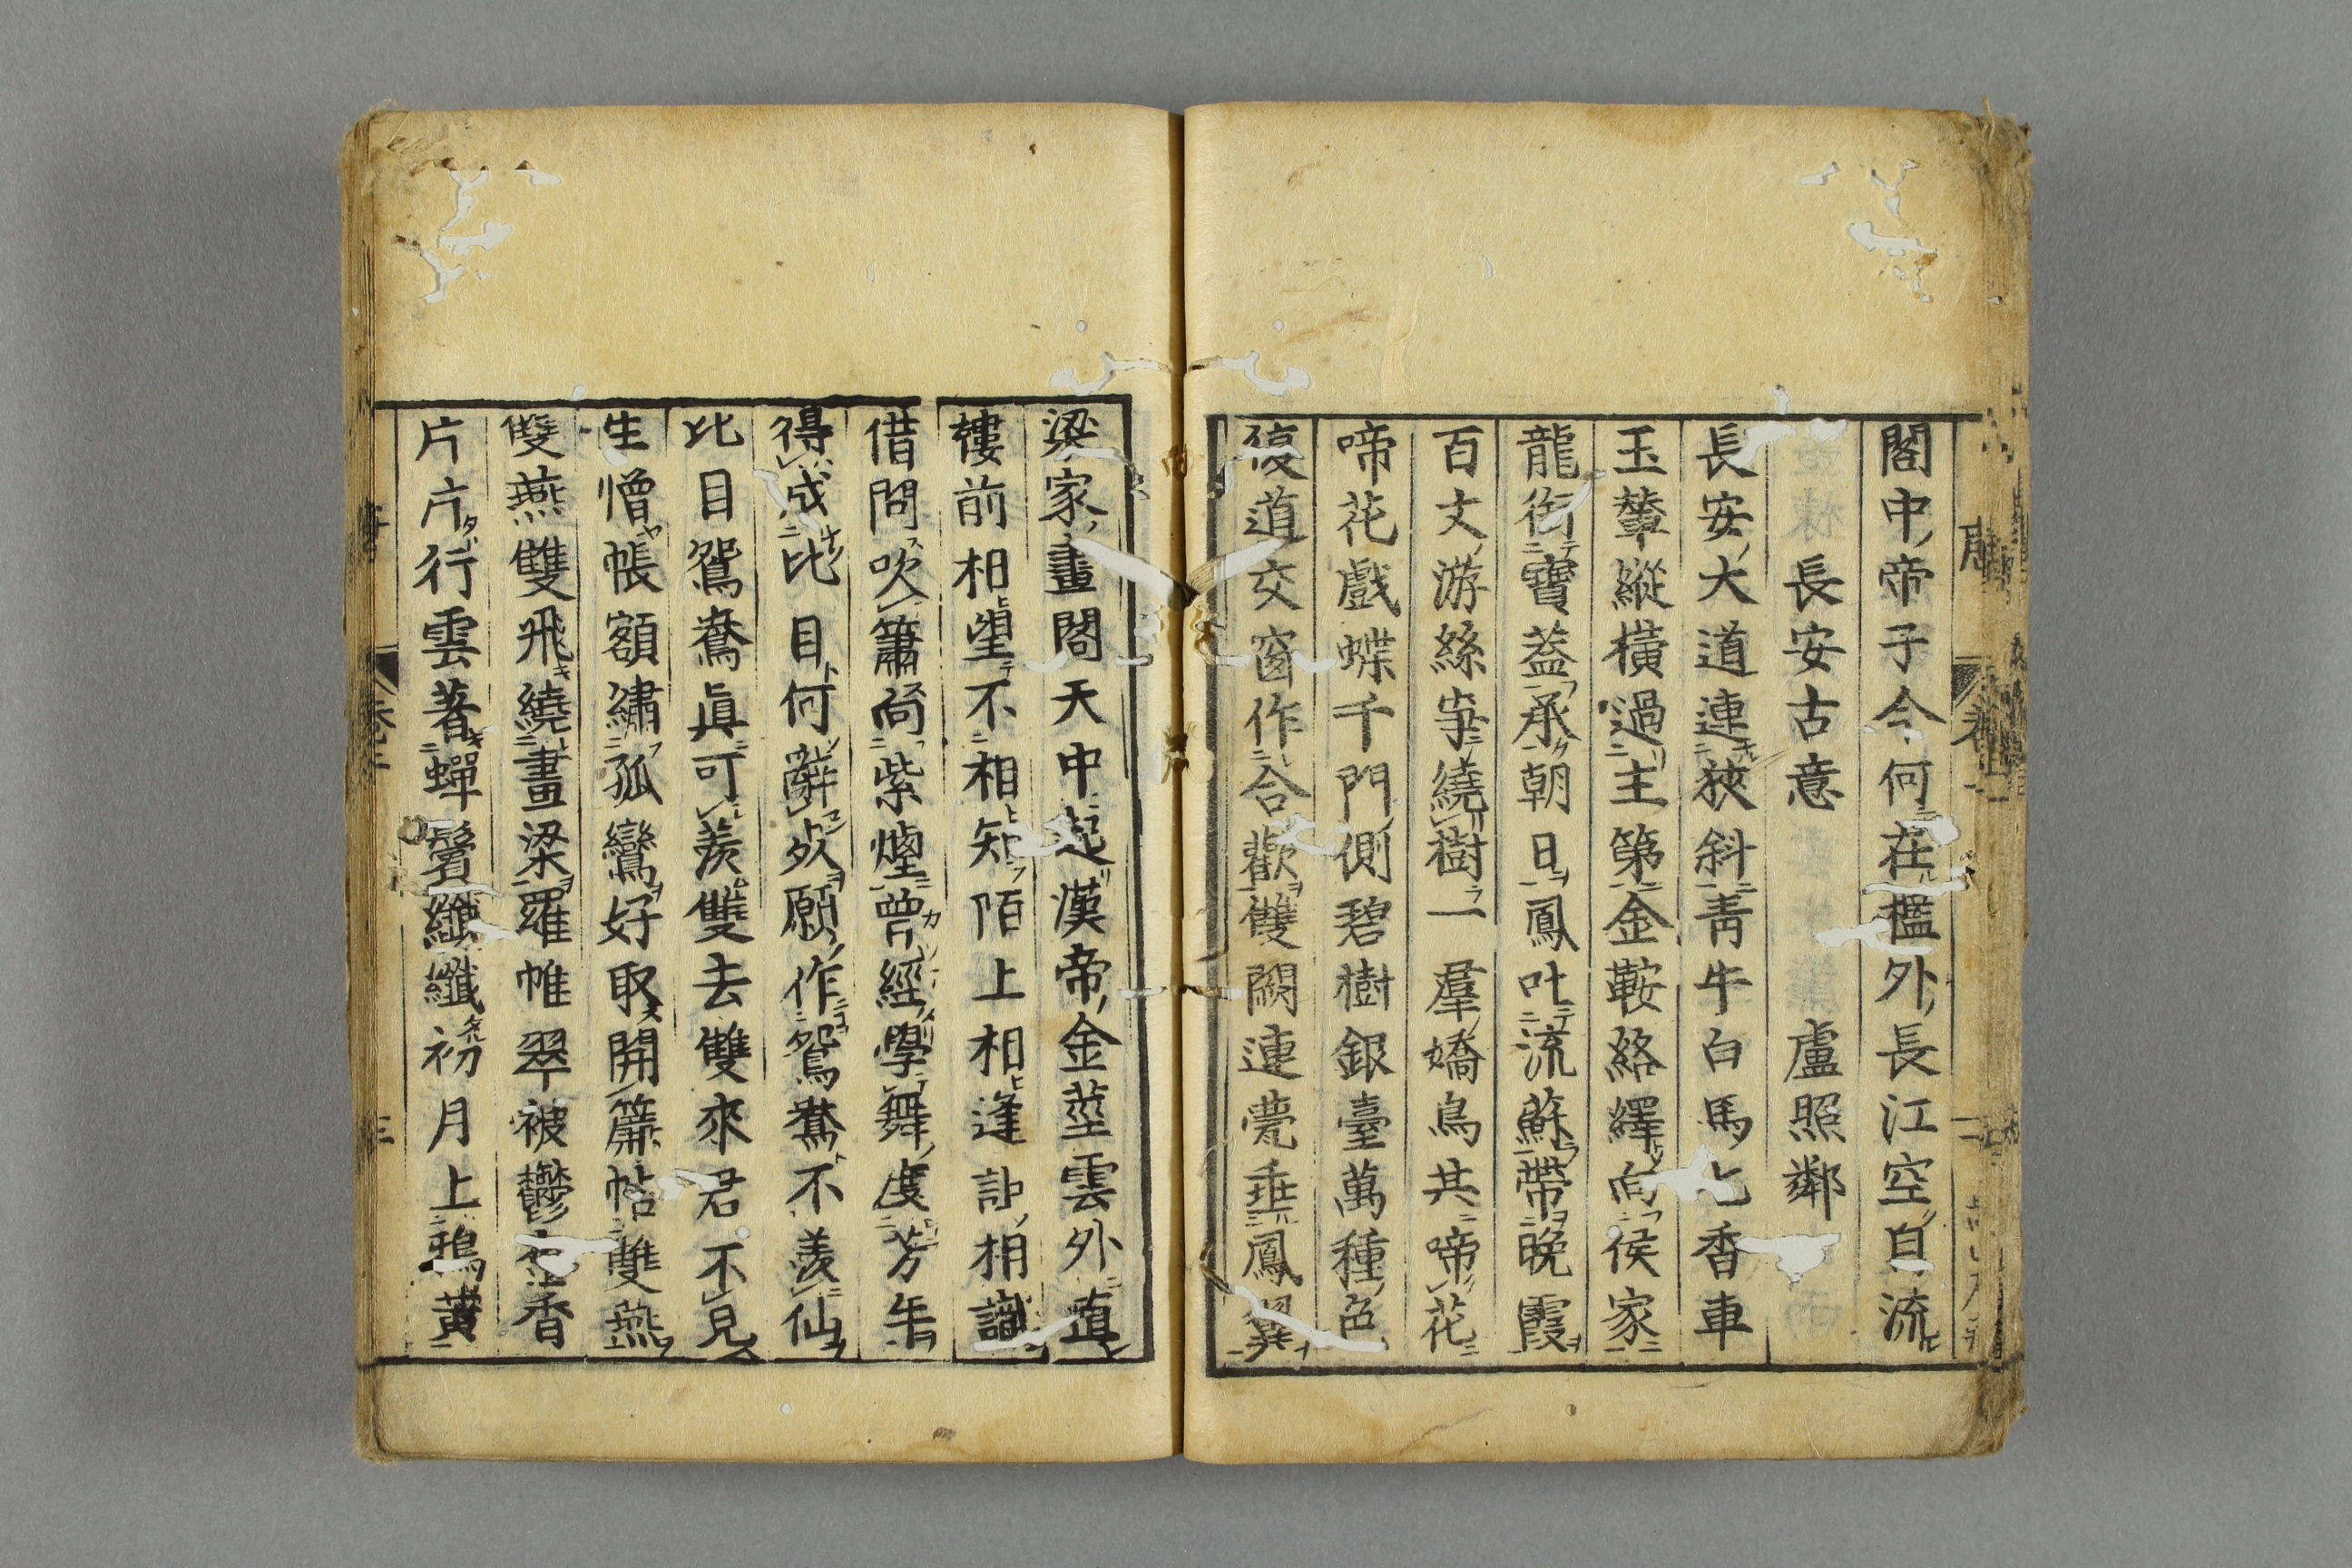 閣中帝子今何在檻外長江空自流
長安古意 盧照鄰
長安大道連狹斜青牛白馬七香車
玉輦縱橫過主第金鞍絡繹向侯家
龍銜寶蓋承朝日鳳吐流蘇帶晚霞
百丈游絲爭繞樹一羣嬌鳥共啼花
啼花戲蝶千門側碧樹銀臺萬種色
複道交窗作合歡雙闕連甍垂鳳翼
梁家畫閣天中起漢帝金莖雲外直
樓前相望不相知陌上相逢詎相識
借問吹簫向紫煙曾經學舞度芳年
得成比目何辭死願作鴛鴦不羨仙
比目鴛鴦眞可羨雙去雙來君不見
生憎帳額繡孤鸞好取開簾帖雙燕
雙燕雙飛繞畫梁羅帷翠被鬱金香
片片行雲著蟬鬢纖纖初月上鴉黃